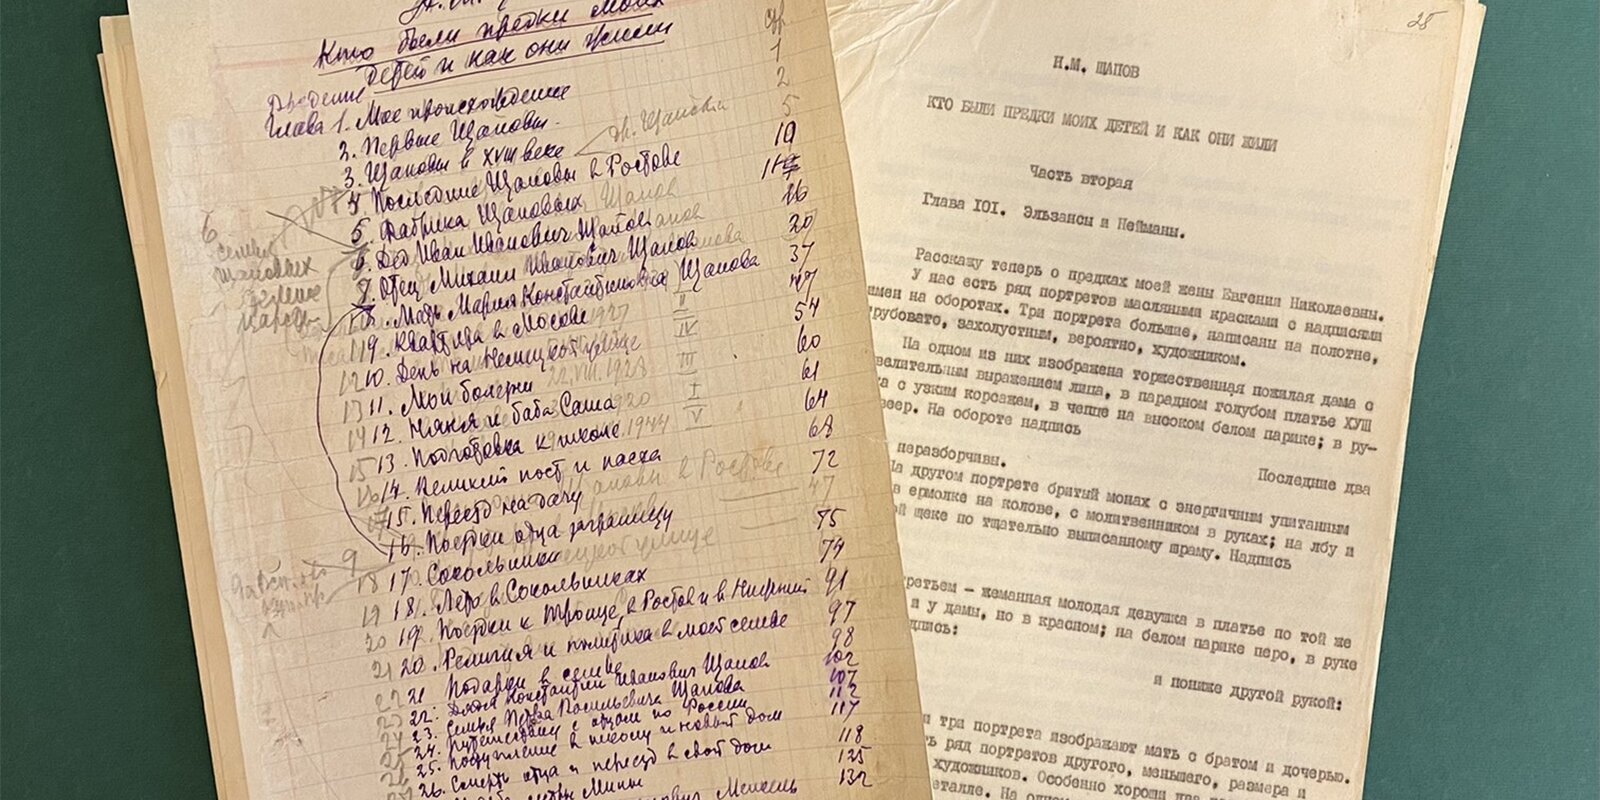 Кто были предки моих
детей и как они жили
стр
Введение 1
Глава 1. Мое происхождение 2
2. Первые Щаповы. 5
3. Щаповы в XVIII веке 10
4. Последние Щаповы в Ростове
5. Фабрика Щаповых 16
6. Дед Иван Иванович Щапов 20
7. Отец Михаил Иванович Щапов 37
8. Мать Мария Константиновна Щапова 47
9. Квартира в Москве 54
10. День на Немецкой улице 60
11. Мои болезни 61
12. Няня и баба Саша 64
13. Подготовка к школе 68
14. Великий пост и пасха 72
15. Переезд на дачу
16. Поездки отца заграницу 75
17. Сокольники 79
18. Лето в Сокольниках 91
19. Поездки к Троице, в Ростов и в Нижний 97
20. Религия и политика в моей семье 98
21 Подарки в семье 102
22. Дядя Константин Иванович Щапов 107
23. Семья Петра Васильевича Щапова 112
24. Путешествие с отцом по России 117
25. Поступление в школу и новый дом 118
26. Смерть отца и переезд в свой дом 125
132
25
Н.М. ЩАПОВ
КТО БЫЛИ ПРЕДКИ МОИХ ДЕТЕЙ И КАК ОНИ ЖИЛИ
Часть вторая
Глава IOI. Эльзансы и Нейманы.
Расскажу теперь о предках моей жены Евгении Николаевны.
У нас есть ряд портретов маслянными красками с надписями
имен на оборотах. Три портрета большие, написаны на полотне,
грубовато, захолустным, вероятно, художником.
На одном из них изображена торжественная пожилая дама с
велительным выражением лица, в парадном голубом платье ХУШ
ка с узким корсажем, в чепце на высоком белом парике; в ру-
веер. На обороте надпись
Последние два
неразборчивы.
На другом портрете бритый монах с энергичным упитанным
в ермолке на колове, с молитвенником в руках; на лбу и
ой щеке по тщательно выписанному шраму. Надпись
ретьем - жеманная молодая девушка в платье по той же
и у дамы, но в красном; на белом парике перо, в руке
дпись:
и пониже другой рукой:
и три портрета изображают мать с братом и дочерью.
ь ряд портретов другого, меньшего, размера и
художников. Особенно хороши два
еталле. На одном